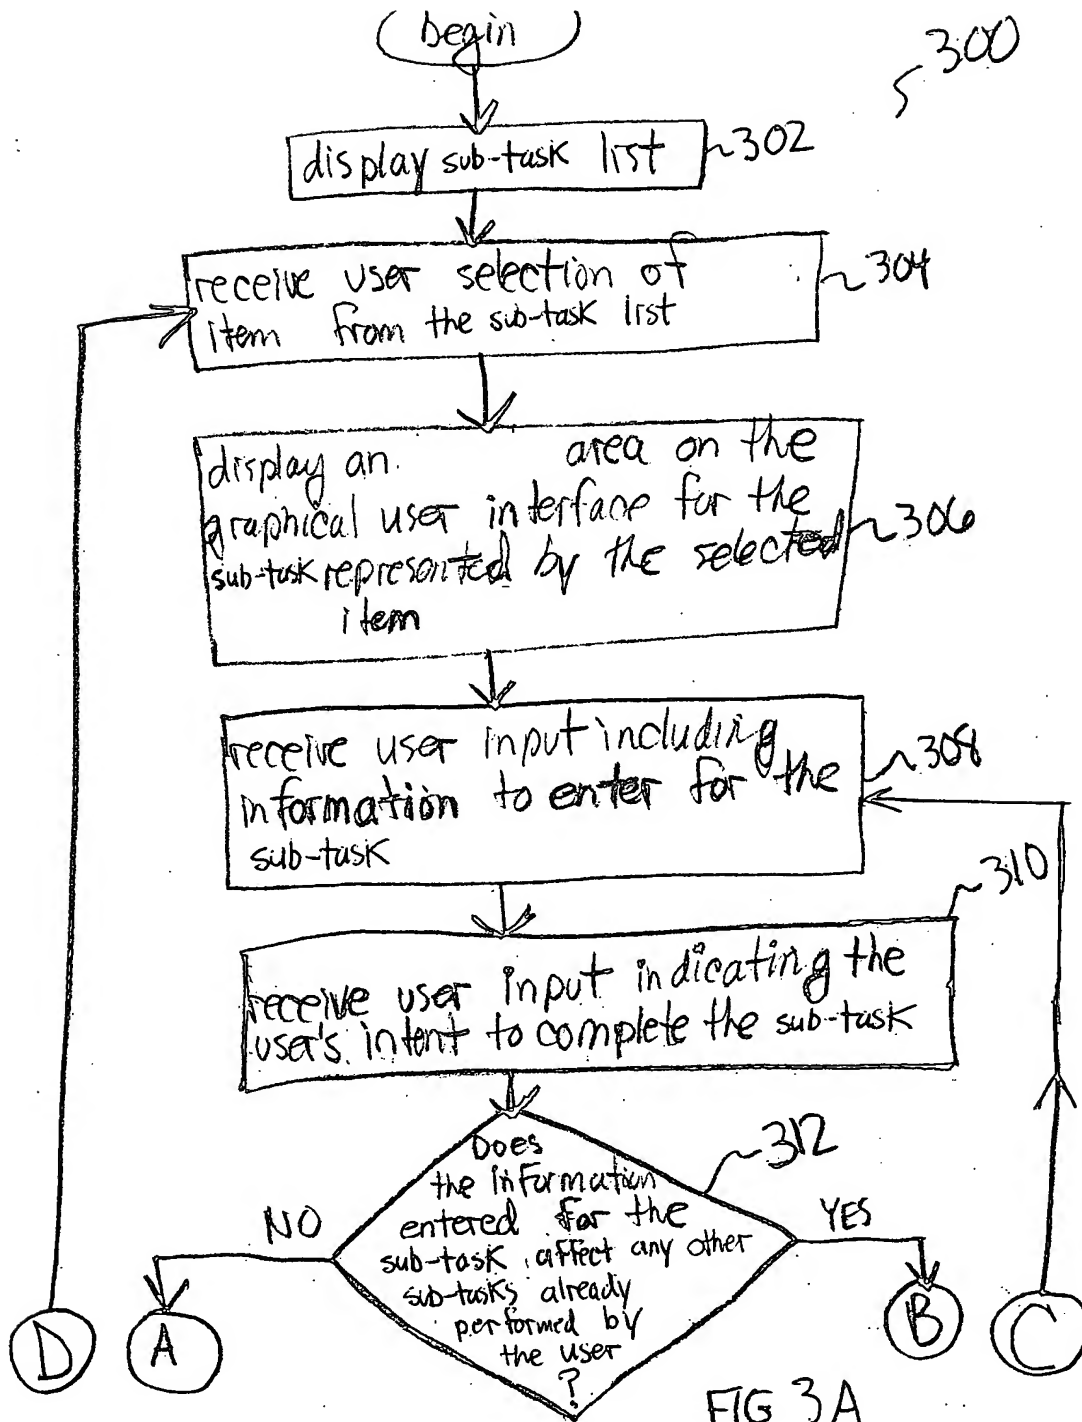 begin
300
display sub-task list
302
receive user selection of
item from the sub-task list
304
display an area on the
graphical user interface for the
sub-task represented by the selected
item
306
receive user input including
information to enter for the
sub-task
308
310
receive user input indicating the
user's intent to complete the sub-task
312
Does
the information
entered for the
sub-task affect any other
sub-tasks already
performed by
the user
?
NO
YES
D
A
B
C
FIG 3A